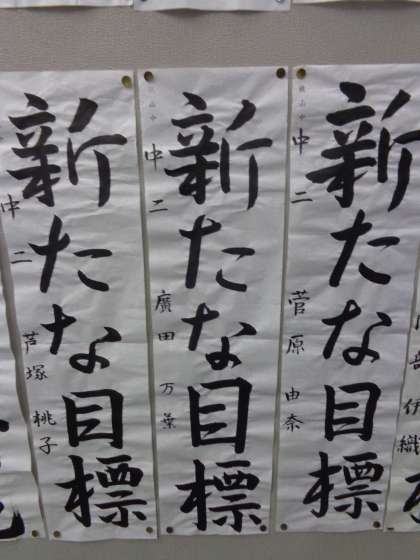 新たな目標
中二 菅原由奈
新たな目標
中二 廣田万葉
新たな目標
中二 芦塚桃子